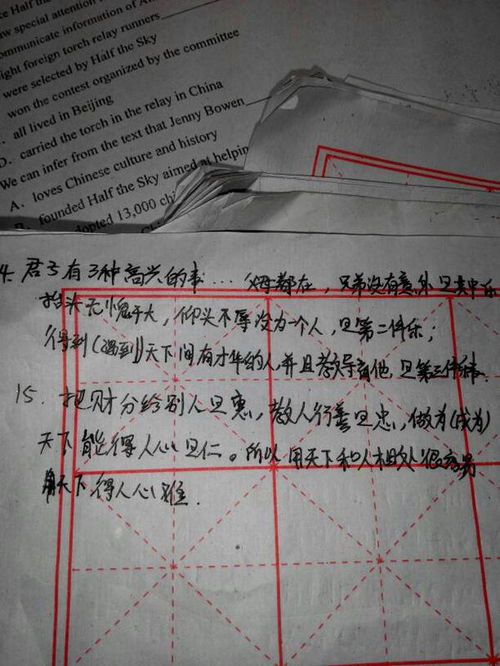 ke Half the
aw special attention
ommunicate information of
ight foreign torch relay runners
were selected by Half the Sky
won the contest organized by the committee
. all lived in Beijing
D. carried the torch in the relay in China
We can infer from the text that Jenny Bowen
A. loves Chinese culture and history
B. founded Half the Sky aimed at helpin
adopted 13,000 ch
4. 君子有3种高兴的事… 父母都在，兄弟没有意外旦其中乐
抬头无愧于天，仰头不辱没为一个人，旦第二件乐；
得到(遇到)天下间有才华的人，并且教导育他，旦第三件
15. 把财分给别人旦惠，教人行善旦忠，做为(成为)
天下能得人心旦仁。所以用天下和人相处很容易
天下得人心难.